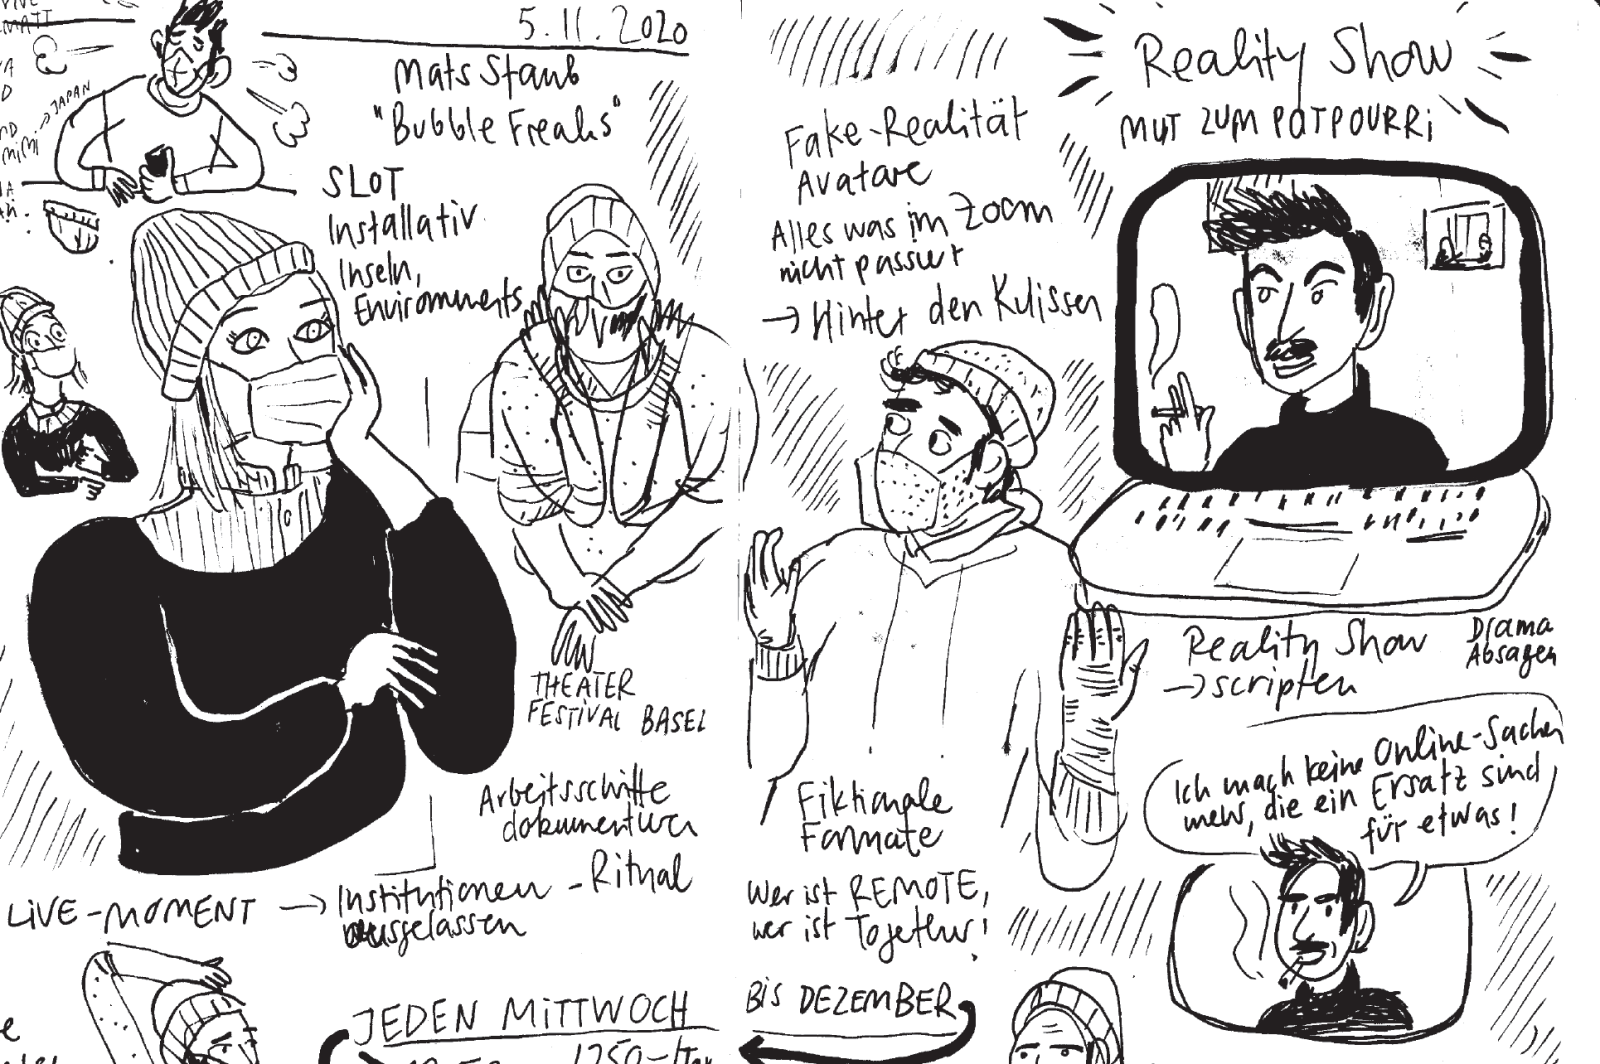 5.11.2020
Mats Staub
"Bubble Freaks"
JAPAN
SLOT
Installativ
Inseln,
Enviromments
THEATER
FESTIVAL BASEL
Arbeitsschritte
dokumentieren
- Ritual
LiVE-MOMENT → Institutionen
ausgelassen
JEDEN MiTTWOCH
Reality Show
MUT ZUM POTPOURRi
Fake-Realität
Avatare
Alles was im Zoom
nicht passiert
→ Hinter den Kulissen
Reality Show
→ scripten
Drama
Absagen
Ich mach keine Online-Sachen
mehr, die ein Ersatz sind
für etwas!
Fiktionale
Formate
Wer ist REMOTE,
wer ist Together!
BiS DEZEMBER